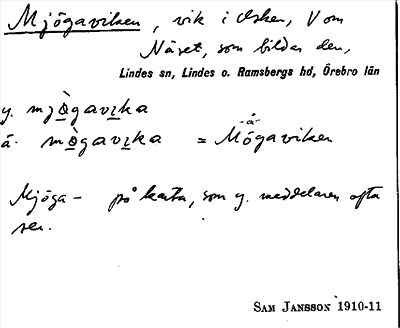 Mjögaviken, vik i Usken, V om
Näset, som bildar den,
Lindes sn, Lindes o. Ramsbergs hd, Örebro län
y. mjògavika
ä. mògavika = Mögaviken
-å-
Mjöga- på karta, som y. meddelaren ofta
ser.
SAM JANSSON 1910-11